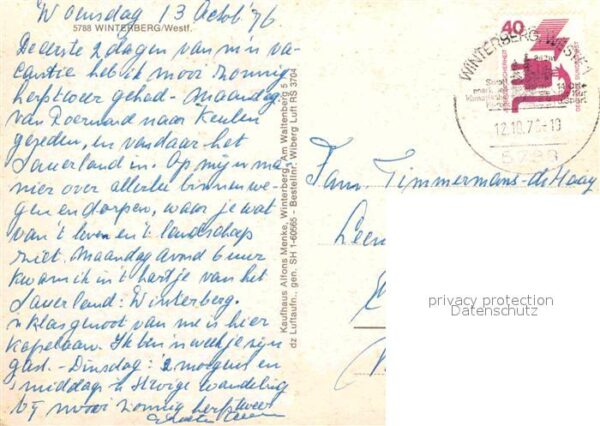 Woensdag 13 Octob. '76
5788 WINTERBERG/Westf.
De eerste 2 dagen van m'n va-
cantie heb ik mooi zonnig
herfstweer gehad - Maandag
van Roermond naar Keulen
gereden, en vandaar het
Sauerland in. Op mijn ma-
nier over allerlei binnenwe-
gen en dorpen, waar je wat
van 't leven en 't landschap
ziet. Maandag avond 6 uur
kwam ik in 't hartje van het
Sauerland: Winterberg.
'n Klasgenoot van me is hier
kapelaan. Ik ben 'n weekje zijn
gast. - Dinsdag: 's morgens en
's middags 'n stevige wandeling
bij mooi zonnig herfstweer
Kaufhaus Alfons Menke, Winterberg, Am Waltenberg 5
dz Luftaufn., gen. SH 1-60565 - Bestellnr. Wiberg Luft RS 3704
40
WINTERBERG, WESTF 1
12.10.76-19
5788
Fam. Timmermans-de Haay
privacy protection
Datenschutz